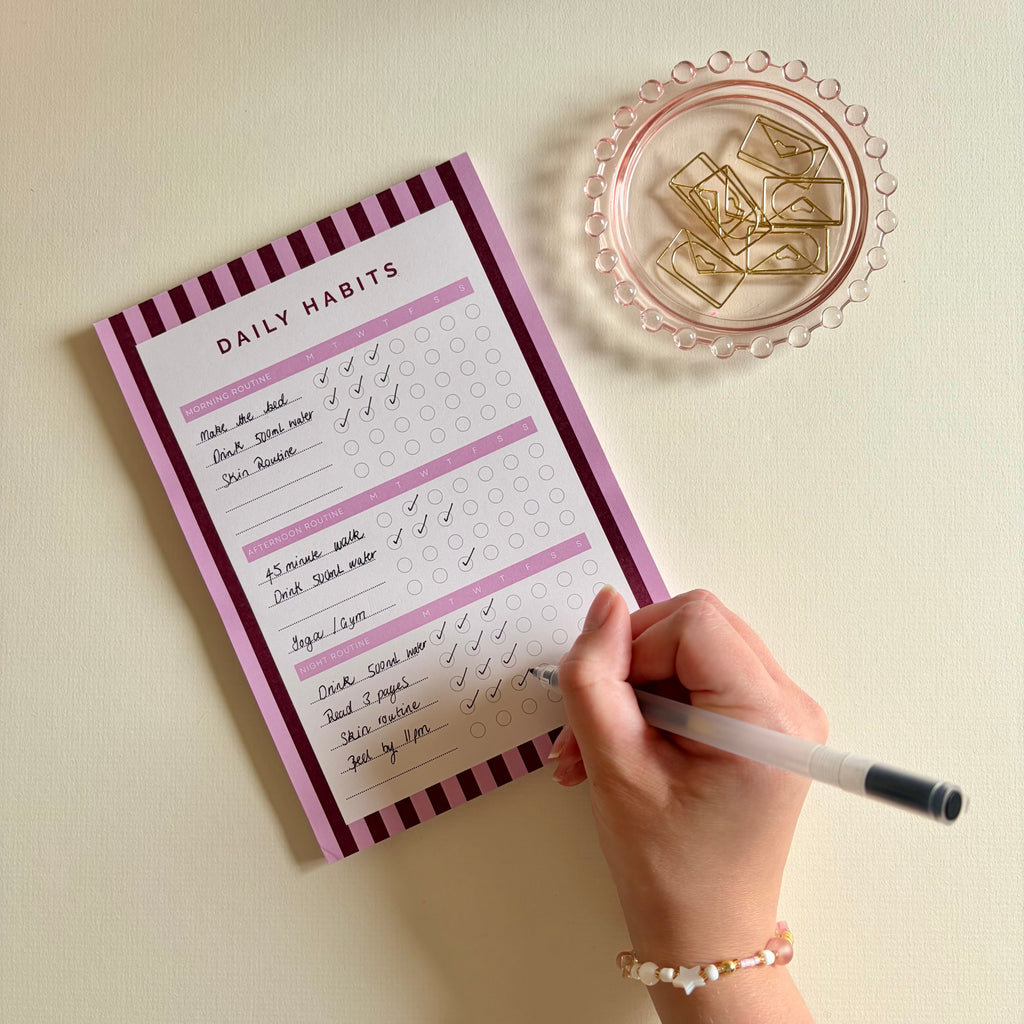 DAILY HABITS
MORNING ROUTINE M T W T F S S
Make the bed
Drink 500mL water
Skin Routine
AFTERNOON ROUTINE M T W T F S S
45 minute walk
Drink 500mL water
Yoga / Gym
NIGHT ROUTINE M T W T F S S
Drink 500mL water
Read 3 pages
Skin routine
by 11pm